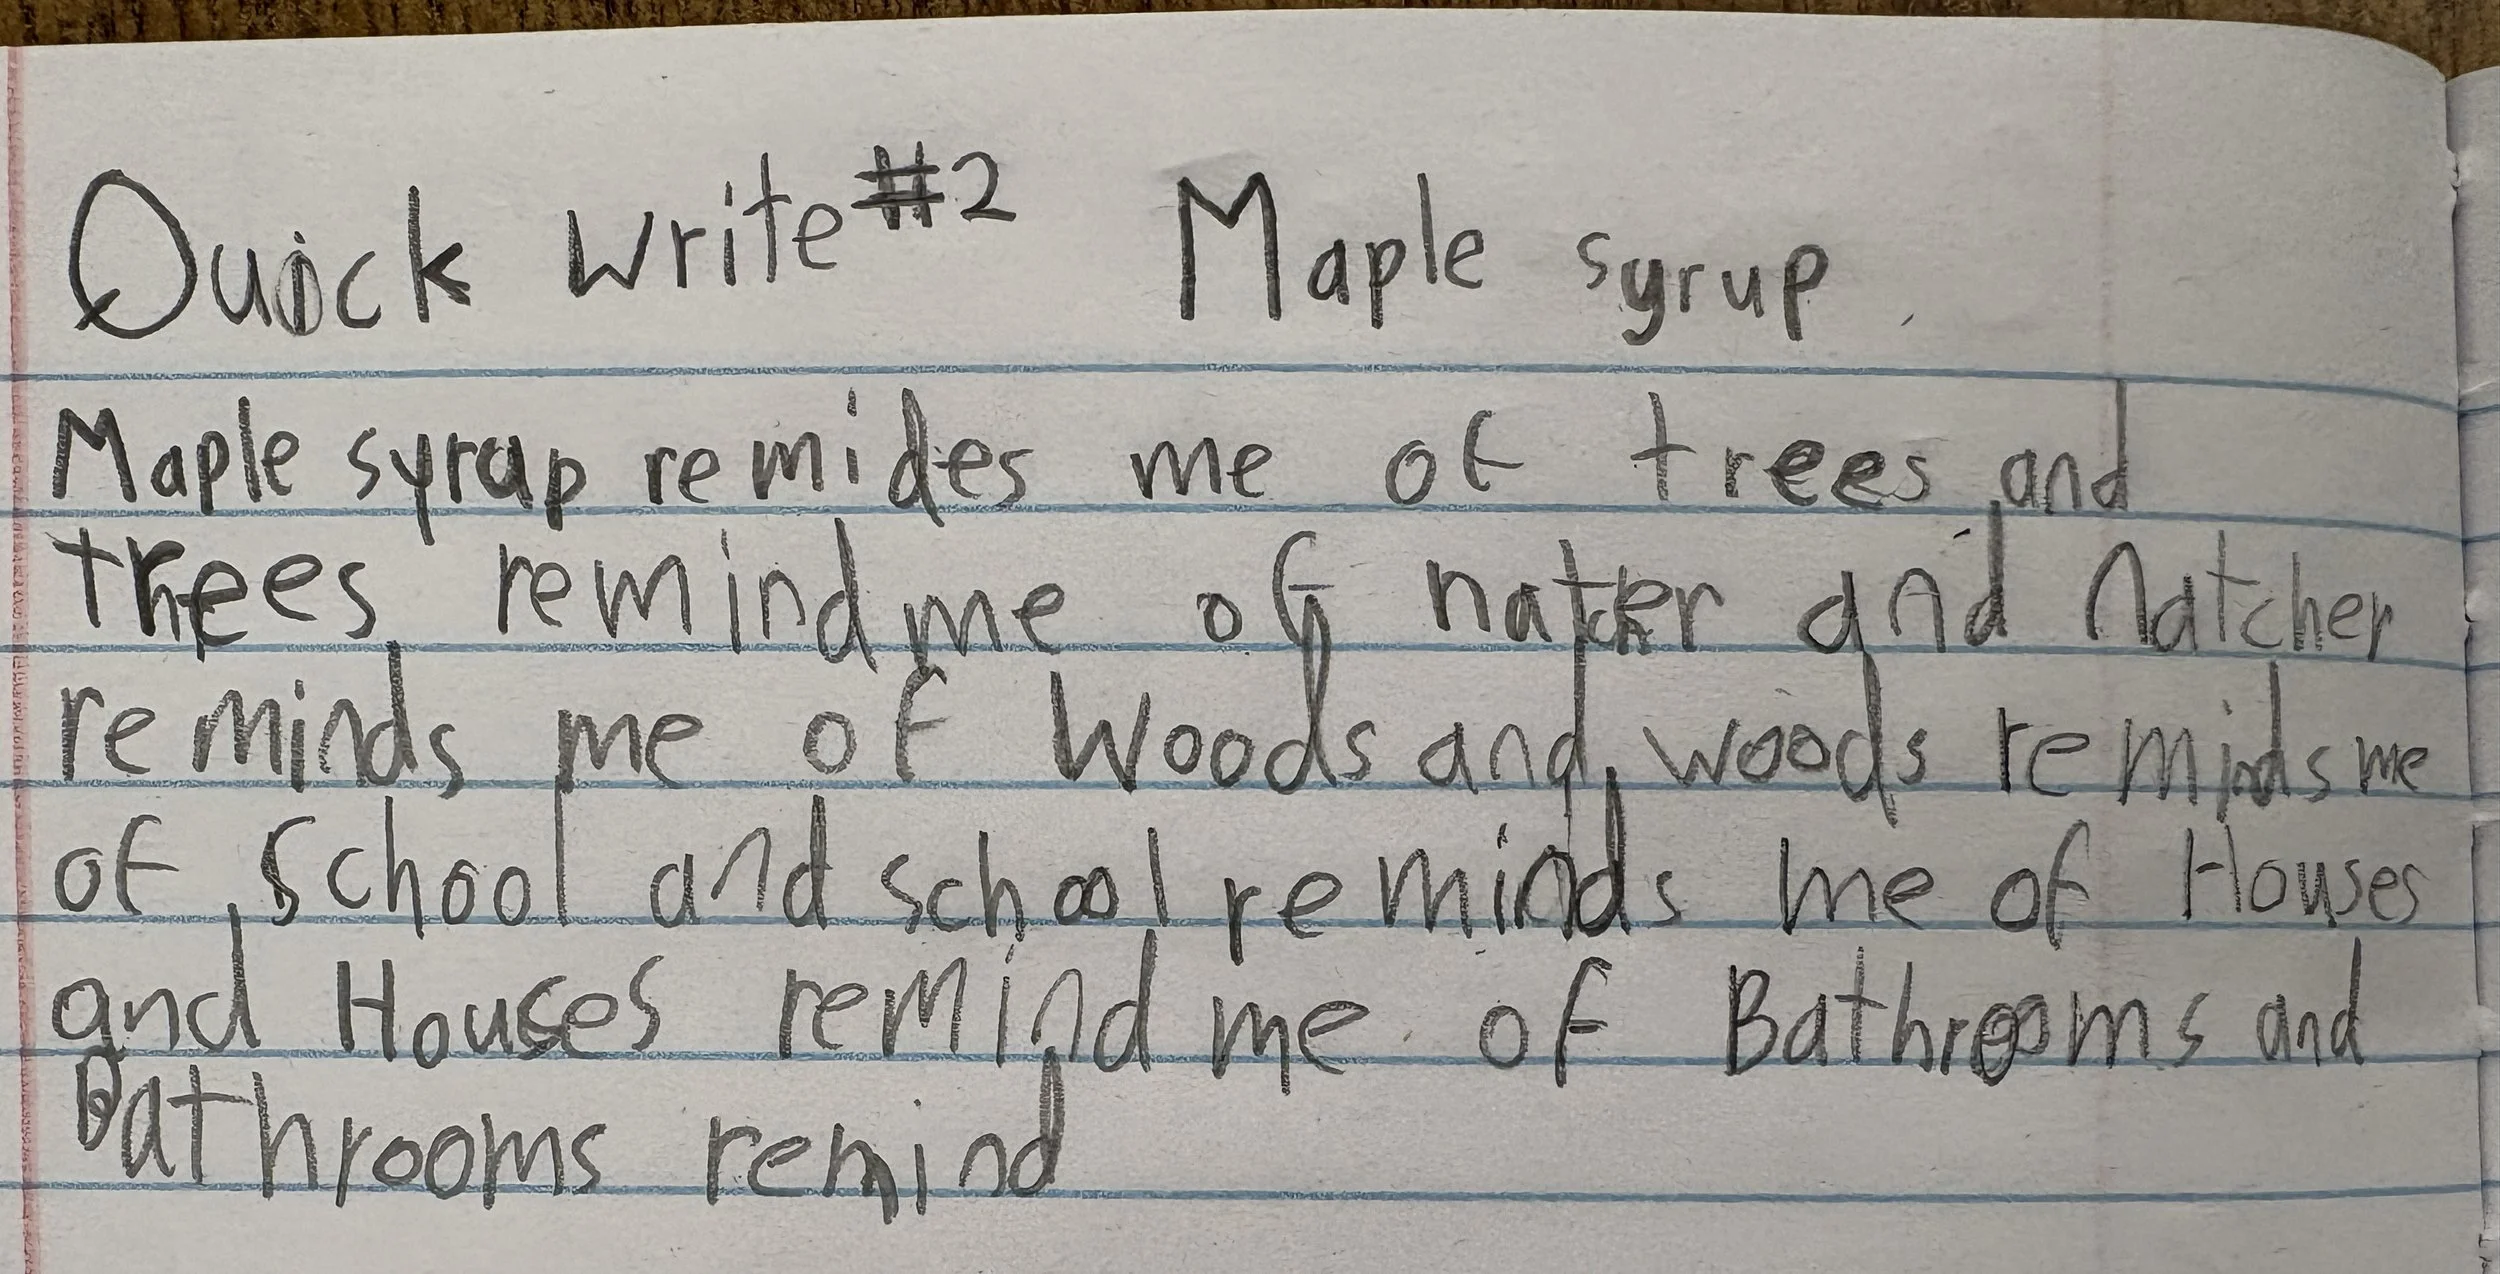 Quick write #2 Maple syrup
Maple syrup remides me of trees and
trees remind me of natcher and natcher
reminds me of woods and woods reminds me
of school and school reminds me of Houses
and Houses remind me of Bathrooms and
Bathrooms remind